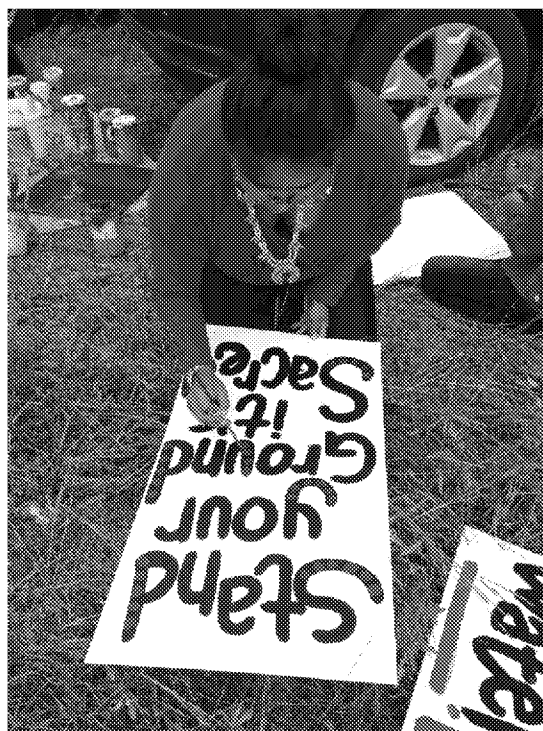 Stand
your
Ground
it
Sacre
water